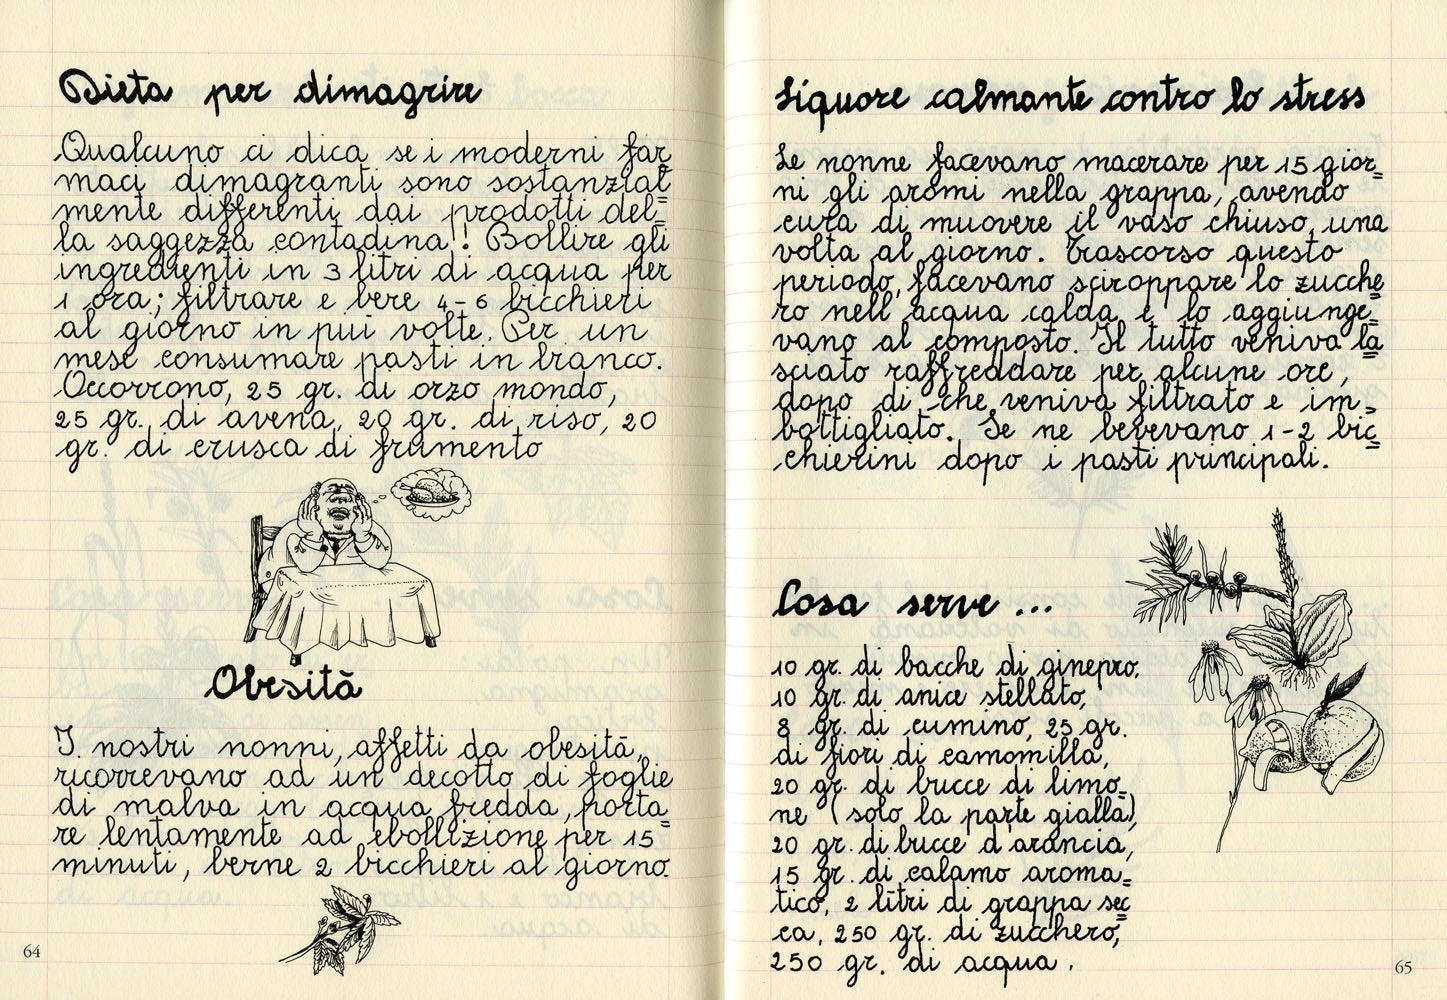 Dieta per dimagrire
Qualcuno ci dica se i moderni far=
maci dimagranti sono sostanzial=
mente differenti dai prodotti del=
la saggezza contadina! Bollire gli
ingredienti in 3 litri di acqua per
1 ora; filtrare e bere 4-6 bicchieri
al giorno in piuĪ volte. Per un
mese consumare pasti in bianco.
Occorrono, 25 gr. di orzo mondo,
25 gr. di avena, 20 gr. di riso, 20
gr. di crusca di frumento
Obesitā
I nostri nonni, affetti da obesitā,
ricorrevano ad un decotto di foglie
di malva in acqua fredda, porta=
re lentamente ad ebollizione per 15
minuti, berne 2 bicchieri al giorno.
64
Liquore calmante contro lo stress
Le nonne facevano macerare per 15 gior=
ni gli aromi nella grappa, avendo
cura di muovere il vaso chiuso, una
volta al giorno. Trascorso questo
periodo, facevano sciroppare lo zucche=
ro nell'acqua calda e lo aggiunge=
vano al composto. Il tutto veniva la=
sciato raffreddare per alcune ore,
dopo di che veniva filtrato e im=
bottigliato. Se ne bevevano 1-2 bic=
chierini dopo i pasti principali.
Cosa serve ...
10 gr. di bacche di ginepro,
10 gr. di anice stellato,
8 gr. di cumino, 25 gr.
di fiori di camomilla,
20 gr. di bucce di limo=
ne (solo la parte gialla),
20 gr. di bucce d'arancia,
15 gr. di calamo aroma=
tico, 2 litri di grappa sec=
ca, 250 gr. di zucchero,
250 gr. di acqua.
65